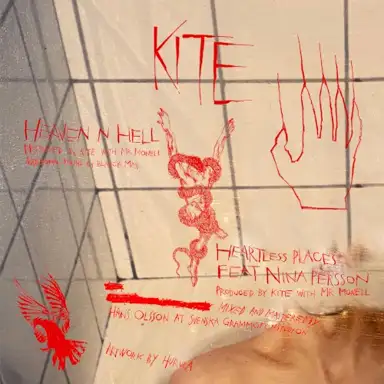 KITE
HEAVEN N HELL
PRODUCED BY KITE WITH MR MORELL
ADDITIONAL
HEARTLESS PLACES
FEAT NINA PERSSON
PRODUCED BY KITE WITH MR MORELL
MIXED AND MASTERED BY
HANS OLSSON AT SVENSKA GRAMMOFON STUDION
ARTWORK BY